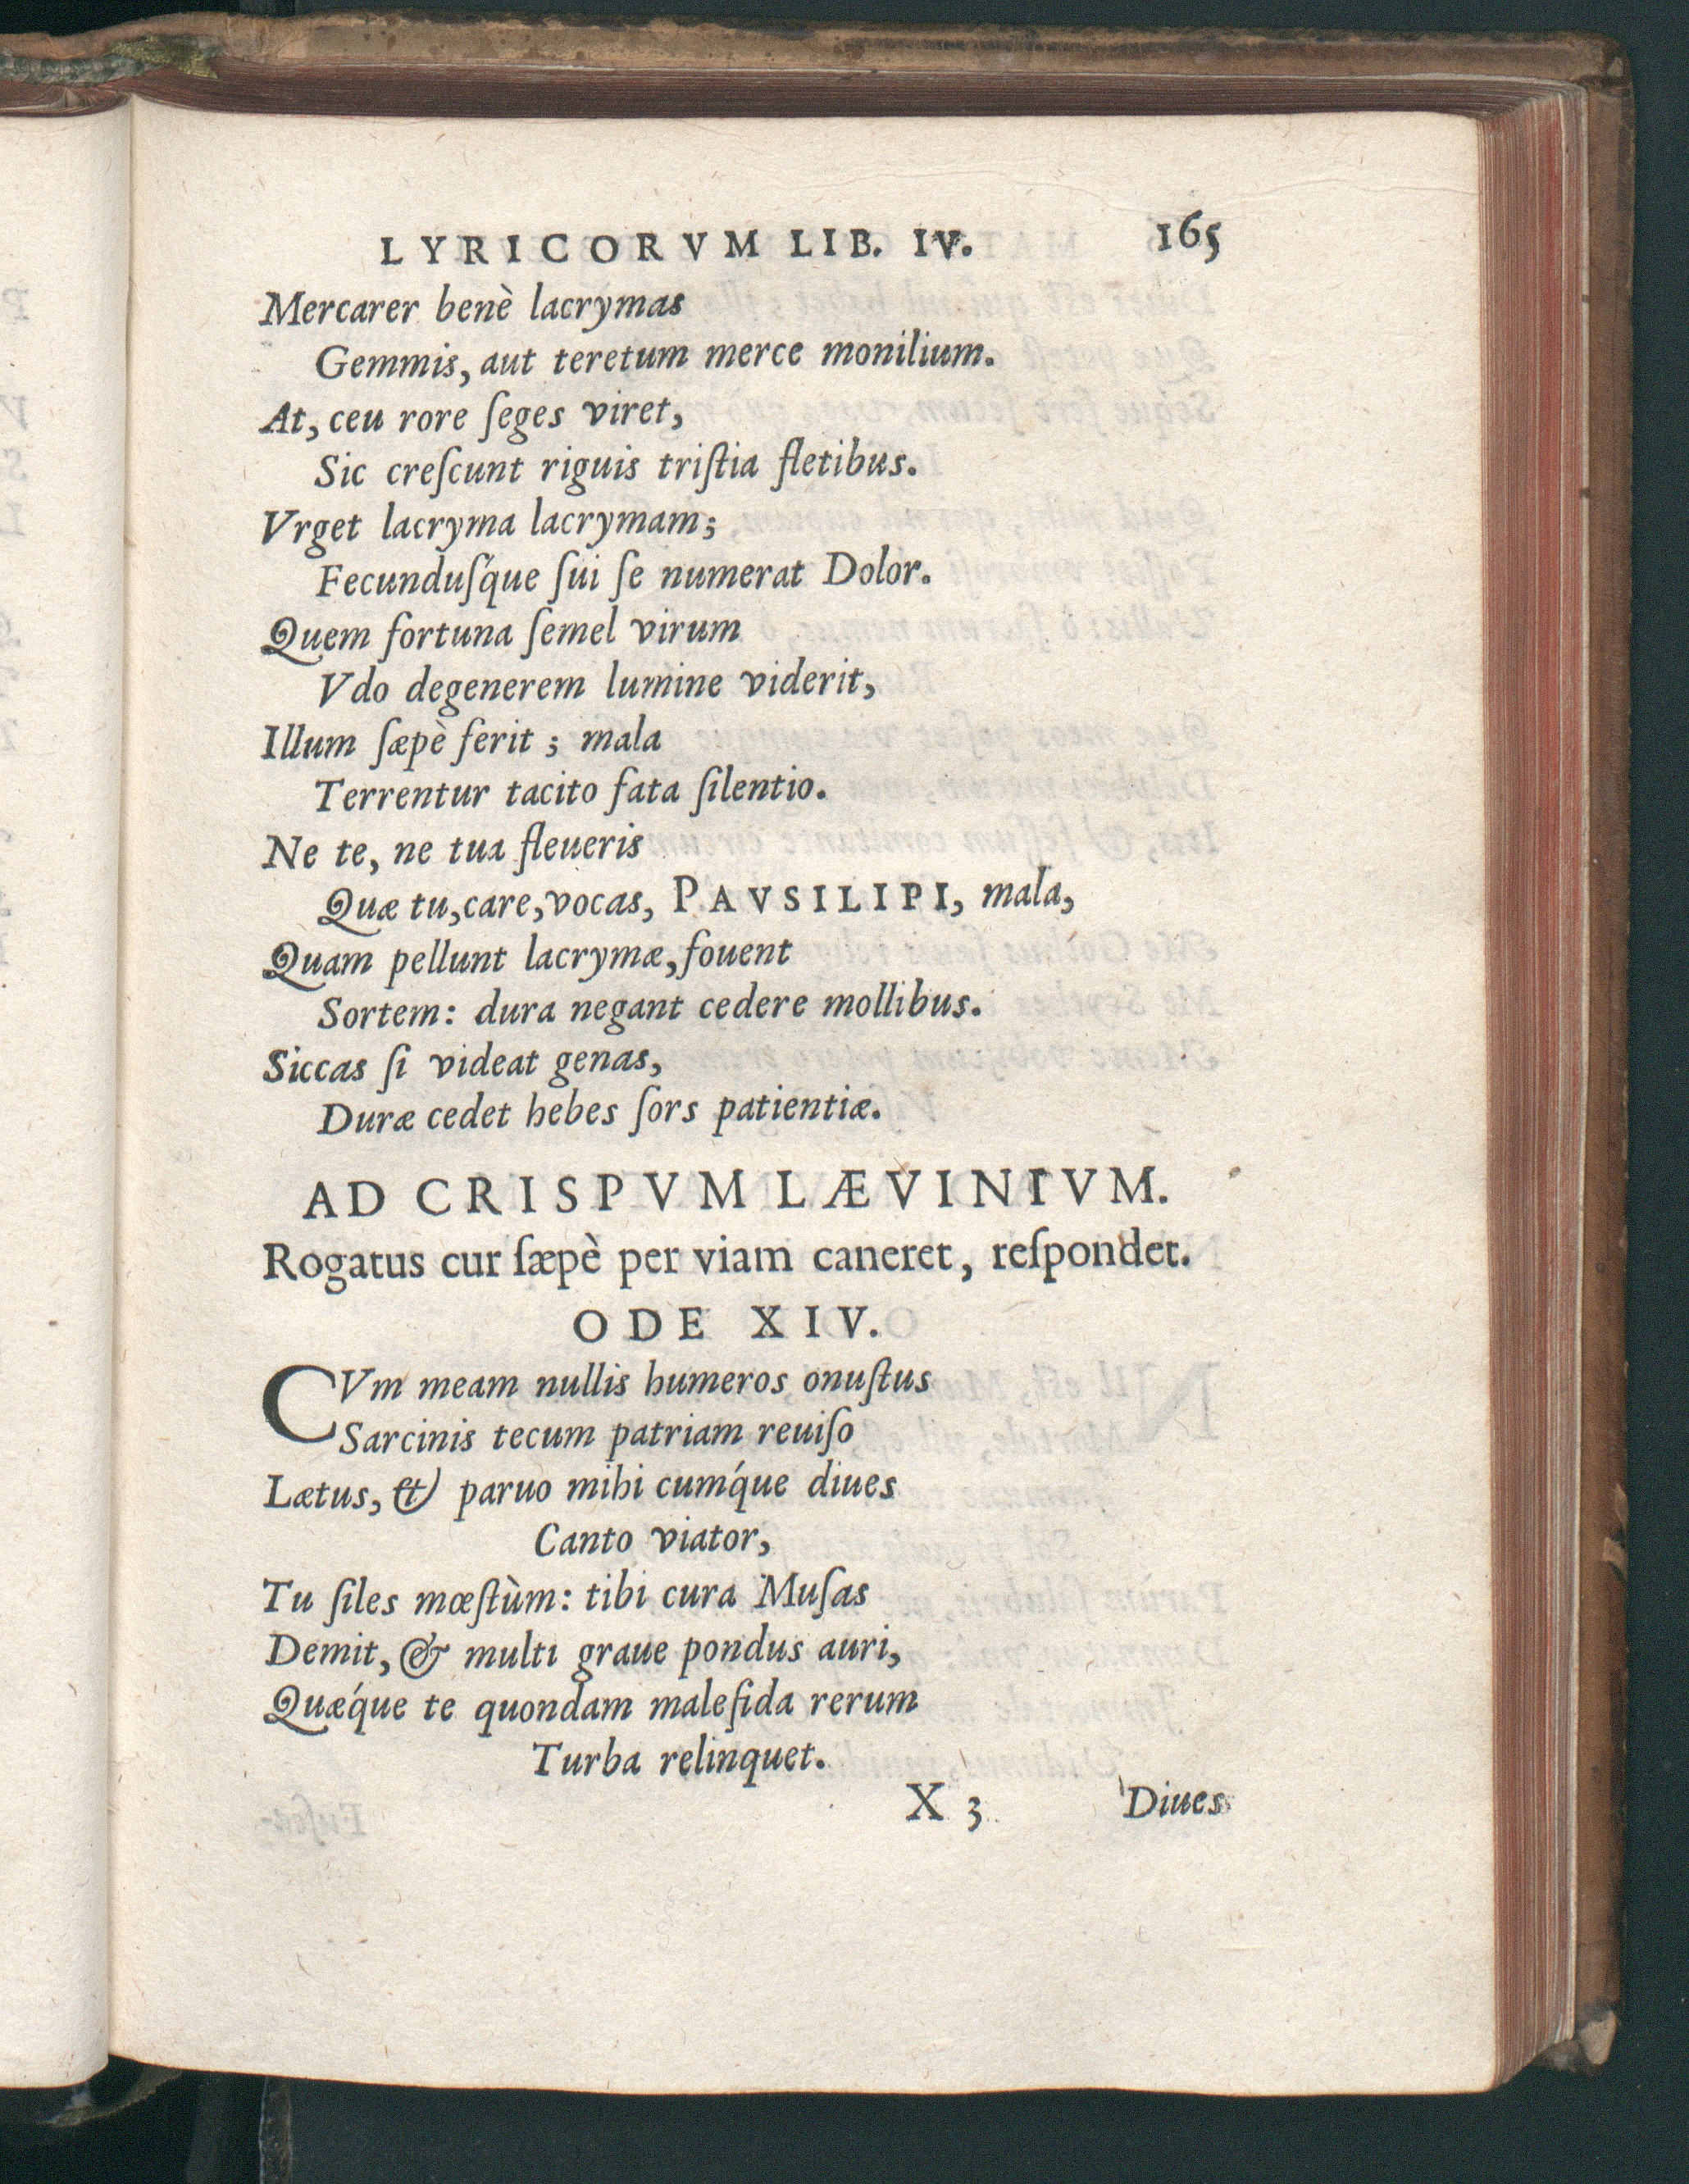 LYRICORVM LIB. IV. 165
Mercarer benè lacrymas
Gemmis, aut teretum merce monilium.
At, ceu rore ſeges viret,
Sic creſcunt riguis triſtia fletibus.
Vrget lacryma lacrymam;
Fecunduſq́ue ſui ſe numerat Dolor.
Quem fortuna ſemel virum
Vdo degenerem lumine viderit,
Illum ſæpè ferit; mala
Terrentur tacito fata ſilentio.
Ne te, ne tua fleueris
Quæ tu, care, vocas, PAVSILIPI, mala,
Quam pellunt lacrymæ, fouent
Sortem: dura negant cedere mollibus.
Siccas ſi videat genas,
Duræ cedet hebes ſors patientiæ.
AD CRISPVM LÆVINIVM.
Rogatus cur ſæpè per viam caneret, reſpondet.
ODE XIV.
CVm meam nullis humeros onuſtus
Sarcinis tecum patriam reuiſo
Lætus, & paruo mihi cumq́ue diues
Canto viator,
Tu ſiles mœſtùm: tibi cura Muſas
Demit, & multi graue pondus auri,
Quæq́ue te quondam malefida rerum
Turba relinquet.
X 3 Diues